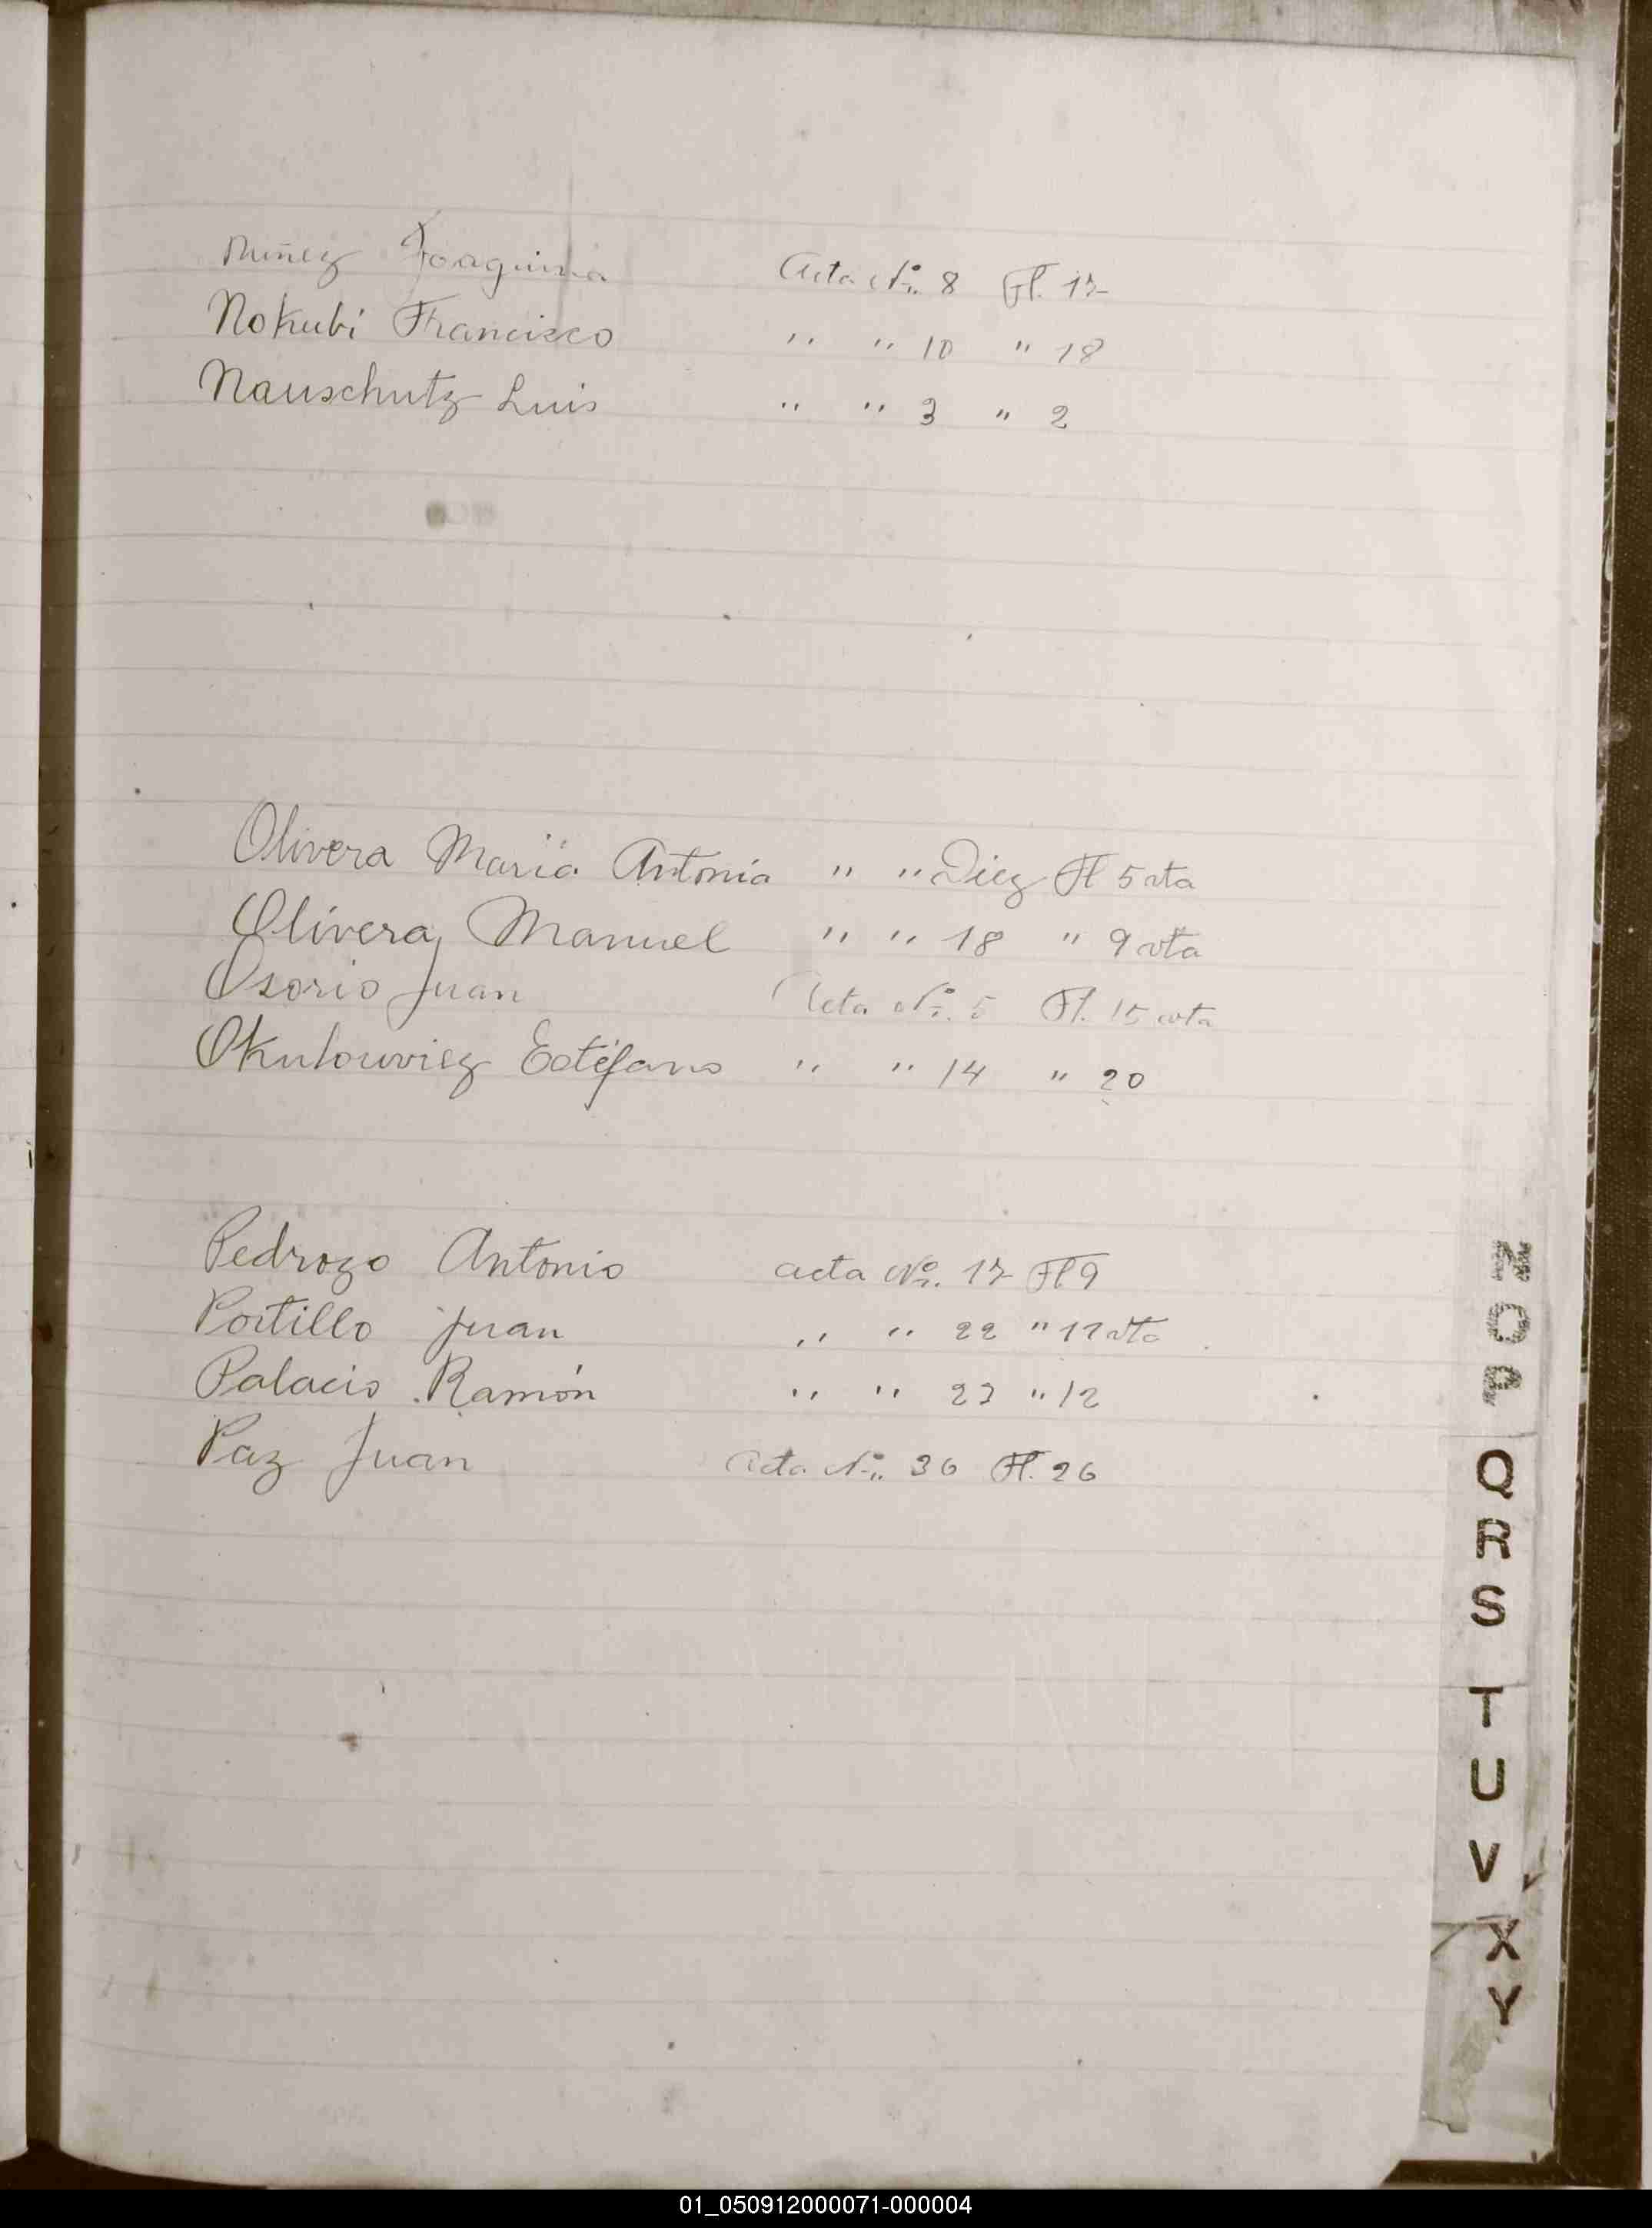 Nuñez Joaquina Acta Nº. 8 Fl. 17
Nokubi Francisco " " 10 " 18
Nauschutz Luis " " 3 " 2
Olivera María Antonia " " Diez Fl 5 vta
Olivera Manuel " " 18 " 9 vta
Osorio Juan Acta Nº. 5 Fl. 15 vta
Okulowiez Estéfano " " 14 " 20
Pedrozo Antonio acta Nº. 17 Fl 9
Portillo Juan " " 22 " 11 vta
Palacio Ramón " " 23 " 12
Paz Juan Acta Nº. 36 Fl. 26
N
O
P
Q
R
S
T
U
V
X
Y
01_050912000071-000004